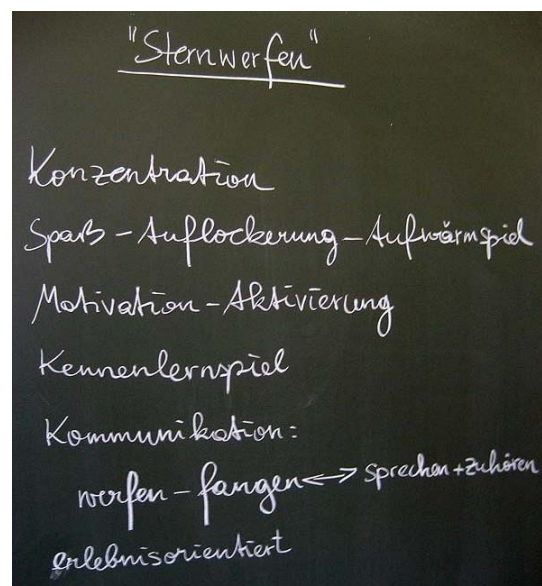 "Sternwerfen"
Konzentration
Spaß - Auflockerung - Aufwärmspiel
Motivation - Aktivierung
Kennenlernspiel
Kommunikation:
werfen - fangen <-> sprechen + zuhören
erlebnisorientiert